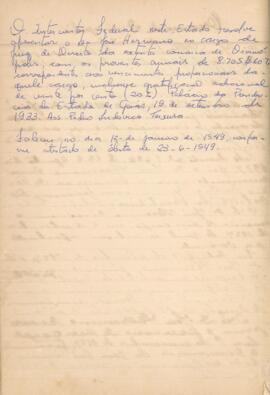 O Interventor Federal neste Estado resolve
aposentar o dr. José Hermano no cargo de
Juiz de Direito da extinta comarca de
polis, com os proventos anuais de 8.705$60
correspondente aos vencimentos proporcionais da
quele cargo, inclusive gratificação adicional
de vinte por cento (20%) Palácio da Presidên
cia do Estado de Goiás, 19 de setembro de
1933. Ass. Pedro Ludovico Teixeira.
Faleceu no dia 12 de janeiro de 1949, confor
me atestado de óbito de 23-6-1949.